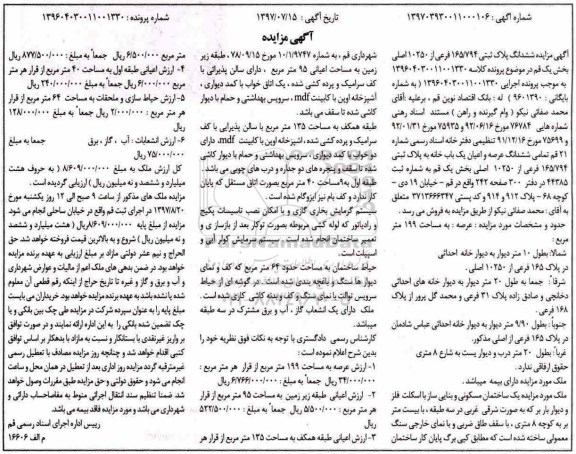 شماره آگهی : ۱۳۹۷۰۳۹۳۰۰۱۱۰۰۰۱۰۶
تاریخ آگهی : ۱۳۹۷/۰۷/۱۵
شماره پرونده : ۱۳۹۶۰۴۰۳۰۰۱۱۰۰۱۳۳۰
آگهی مزایده
آگهی مزایده ششدانگ پلاک ثبتی ۱۶۵/۷۹۴ فرعی از ۱۰۲۵۰ اصلی
بخش یک قم در موضوع پرونده کلاسه ۱۳۹۶۰۴۰۳۰۰۱۱۰۰۱۳۳۰
به موجب پرونده اجرایی ۱۳۹۶۰۴۰۳۰۰۱۱۰۰۱۳۳۰ ( به شماره
بایگانی : ۹۶۰۱۳۹۰ ) له : بانک اقتصاد نوین قم ، برعلیه :آقای
محمد صفائی نیکو ( وام گیرنده و راهن ) مستند اسناد رهنی
شماره هایی ۷۶۷۸۴ مورخ ۹۲/۰۶/۱۶ و ۷۵۹۳۵ مورخ ۹۲/۰۱/۳۱
و ۷۵۶۹۹ مورخ ۹۱/۱۲/۱۶ تنظیمی دفتر خانه اسناد رسمی شماره
۲۱ قم تمامی ششدانگ عرصه و اعیان یک باب خانه به پلاک ثبتی
۱۶۵/۷۹۴ فرعی از ۱۰۲۵۰ اصلی بخش یک قم به شماره ثبت
۴۴۳۸۵ در دفتر ۳۰۰ صفحه ۲۴۲ واقع در قم - خیابان ۱۹ دی -
کوچه ۶۸ - پلاک ۹۱۲ و ۹۱۴ و کد پستی ۳۷۱۳۶۶۶۳۴۷ متعلق
به آقای : محمد صفائی نیکو از طریق مزایده به فروش می رسد .
حدود و مشخصات مورد مزایده : عرصه : به مساحت ۱۹۹ متر
مربع :
شمالا: بطول ۱۰ متر دیوار به دیوار خانه احداثی
در پلاک ۱۶۵ فرعی از ۱۰۲۵۰ اصلی .
شرقا : جمعا به طول ۲۰ متر دیوار به دیوار خانه های احداثی
دخلچی و صادق زاده پلاک ۳۱ فرعی و محمد گل پرور از پلاک
۱۶۸ فرعی
جنوبا : بطول ۹/۹۰ متر دیوار به دیوار خانه احداثی عباس شادمان
در پلاک ۱۶۵ فرعی از اصلی مذکور.
غربا : بطول ۲۰ متر درب و دیوار پست به شارع ۸ متری
حقوق ارفاقی ندارد .
ملک مورد مزایده دارای بیمه میباشد .
ملک مورد مزایده یک ساختمان مسکونی و بنایی ساز با اسکلت فلز
و دیوار بار بر که به صورت شرقی غربی در سه طبقه ، با بیست متر
بر به کوچه ۸ متری ، با سقف طاق ضربی و با نمای خارجی سنگ
معمولی ساخته شده است که مطابق کپی برگ پایان کار ساختمان
شهرداری قم ، به شماره ۱۰/۱/۹۷۴۷ مورخ ۷۸/۰۹/۱۵ ، طبقه زیر
زمین به مساحت اعیانی ۹۵ متر مربع ، دارای سالن پذیرائی با
کف سرامیک و پرده کشی شده ، یک اتاق خواب با کمد دیواری ،
آشپزخانه اوپن با کابینت mdf ، سرویس بهداشتی و حمام با دیوار
کاشی شده تا سقف می باشد.
طبقه همکف به مساحت ۱۳۵ متر مربع با سالن پذیرایی با کف
سرامیک و پرده کشی شده ، اشپزخانه اوپن با کابینت mdf، دارای
دو خواب با کمد دیواری ، سرویس بهداشتی و حمام با دیوار کاشی
شده تا سقف و پنجره های دو جداره و درب های چوبی می باشد.
طبقه اول به ۴۰مساحت متر مربع بصورت اتاق مستقل که پایان
کار ندارد و کف بام نیز ایزوگام شده است .
سیستم گرمایش بخاری گازی و با امکان نصب تاسیسات پکیج
و رادیاتور که لوله کشی مربوطه بصورت توکار بعد از بازسازی و
تعمیر ساختمان انجام شده است . سیستم سرمایش کولر آبی و
اسپیلت است.
حیاط ساختمان به مساحت حدود ۶۴ متر مربع که کف و نمای
دیوار ها سنگ و باغچه بندی شده است. در گوشه ای از حیاط
سرویس توالت با نمای سنگ و بدینه کاشی کاری شده است .
ملک دارای یک انشعاب گاز ، آب و برق مشترک در سه طبقه
میباشد.
کارشناس رسمی دادگستری با توجه به نکات فوق نظریه خود را
بدین شرح اعلام نموده است :
۱- ارزش عرصه به مساحت ۱۹۹ متر مربع از قرار هر متر مربع :
۳۴/۰۰۰/۰۰۰ ریال جمعا به مبلغ : ۶/۷۶۶/۰۰۰/۰۰۰ ریال
۲- ارزش اعیانی طبقه زیر زمین به مساحت ۹۵ متر مربع از قرار
هر متر مربع : ۵/۵۰۰/۰۰۰ ریال جمعا به مبلغ : ۵۲۲/۵۰۰/۰۰۰
ریال
۳- ارزش اعیانی طبقه همکف به مساحت ۱۳۵ متر مربع از قرار هر
متر مربع ۶/۵۰۰/۰۰۰ ریال جمعا به مبلغ : ۸۷۷/۵۰۰/۰۰۰ ریال
۴- ارزش اعیانی طبقه اول به مساحت ۴۰ متر مربع از قرار هر متر
مربع ۶/۰۰۰/۰۰۰ ریال جمعا به مبلغ : ۲۴۰/۰۰۰/۰۰۰ ریال
۵- ارزش حیاط سازی و ملحقات به مساحت ۶۴ متر مربع از قرار
هر متر مربع : ۲/۰۰۰/۰۰۰ ریال جمعا به مبلغ : ۱۲۸/۰۰۰/۰۰۰
ریال
۶- ارزش انشعابات : آب ، گاز ، برق جمعا به مبلغ
۷۵/۰۰۰/۰۰۰ ریال
کل ارزش ملک به مبلغ ۸/۶۰۹/۰۰۰/۰۰۰ ریال ( به حروف هشت
میلیارد و ششصد و نه میلیون ریال ) ارزیابی گردیده است .
مزایده ملک های مذکور از ساعت ۹ صبح الی ۱۲ روز یکشنبه مورخ
۱۳۹۷/۸/۲۰ در اجرای ثبت قم واقع در خیابان ساحلی انجام می شود
مزایده از مبلغ پایه ۸/۶۰۹/۰۰۰/۰۰۰ریال ( هشت میلیارد و ششصد
و نه میلیون ریال ) شروع و به بالاترین قیمت فروخته خواهد شد. حق
الحراج و نیم عشر دولتی مازاد بر مبلغ ارزیابی به عهده برنده مزایده
خواهد بود. در ضمن بدهی های ملک اعم از مالیات و عوارض شهرداری
و آب و برق و گاز و غیره تا تاریخ حراج از اینکه رقم قطعی آن معلوم
شده یا نشده باشد به عهده برنده مزایده خواهد بود خریداران می بایست
مبلغ پایه را به عنوان سپرده شرکت در مزایده طی چک بین بانکی و یا
چک تضمین شده بانکی را به این اداره ارائه نمایند و در صورت توافق
بر واریز غیرنقدی با بستانکار و نسبت به مازاد با بدهکار بر اساس توافق
کتبی اقدام خواهد شد و چنانچه روز مزایده مصادف با تعطیل رسمی
غیرمترقبه گردد مزایده روز اداری بعد از تعطیل در همان محل و ساعت
انجام می شود و حقوق دولتی و حق مزایده طبق مقررات وصول خواهد
شد. ضمنا تنظیم سند انتقال اجرائی منوط به مفاصاحساب دارائی و
شهرداری می باشد و مورد مزایده فاقد بیمه می باشد.
رییس اداره اجرای اسناد رسمی قم
م الف ۱۶۶۰۶